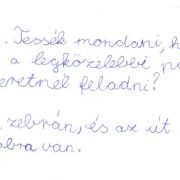 . Tessék mondani, h
a legközelebbi p
eretnél feladni?
zebrán, és az út
obra van.